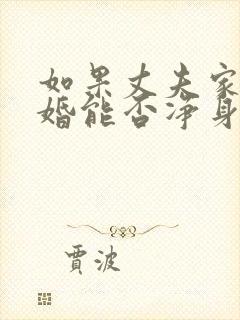 如果丈夫家
婚能否净身
贾波